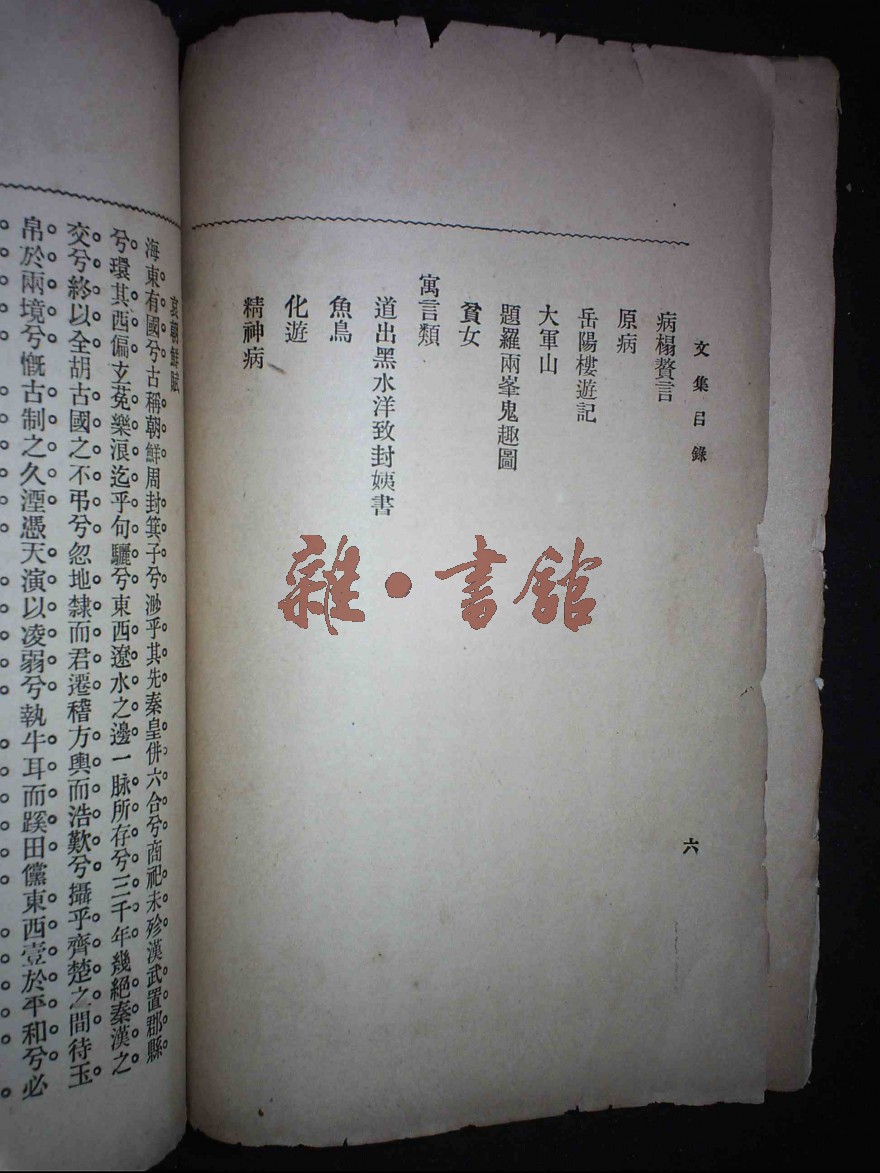 文集目錄
病榻贅言
原病
岳陽樓遊記
大軍山
題羅兩峯鬼趣圖
貧女
寓言類
道出黑水洋致封姨書
魚鳥
化遊
精神病
六
雜·書館
哀朝鮮賦
海東有國兮古稱朝鮮周封箕子兮渺乎其先秦皇併六合兮商祀未殄漢武置郡縣
兮環其西偏玄菟樂浪迄乎句驪兮東西遼水之邊一脉所存兮三千年幾絕秦漢之
交兮終以全胡古國之不弔兮忽地隸而君遷稽方輿而浩歎兮攝乎齊楚之間待玉
帛於兩境兮慨古制之久湮憑天演以凌弱兮執牛耳而蹊田儻東西壹於平和兮必